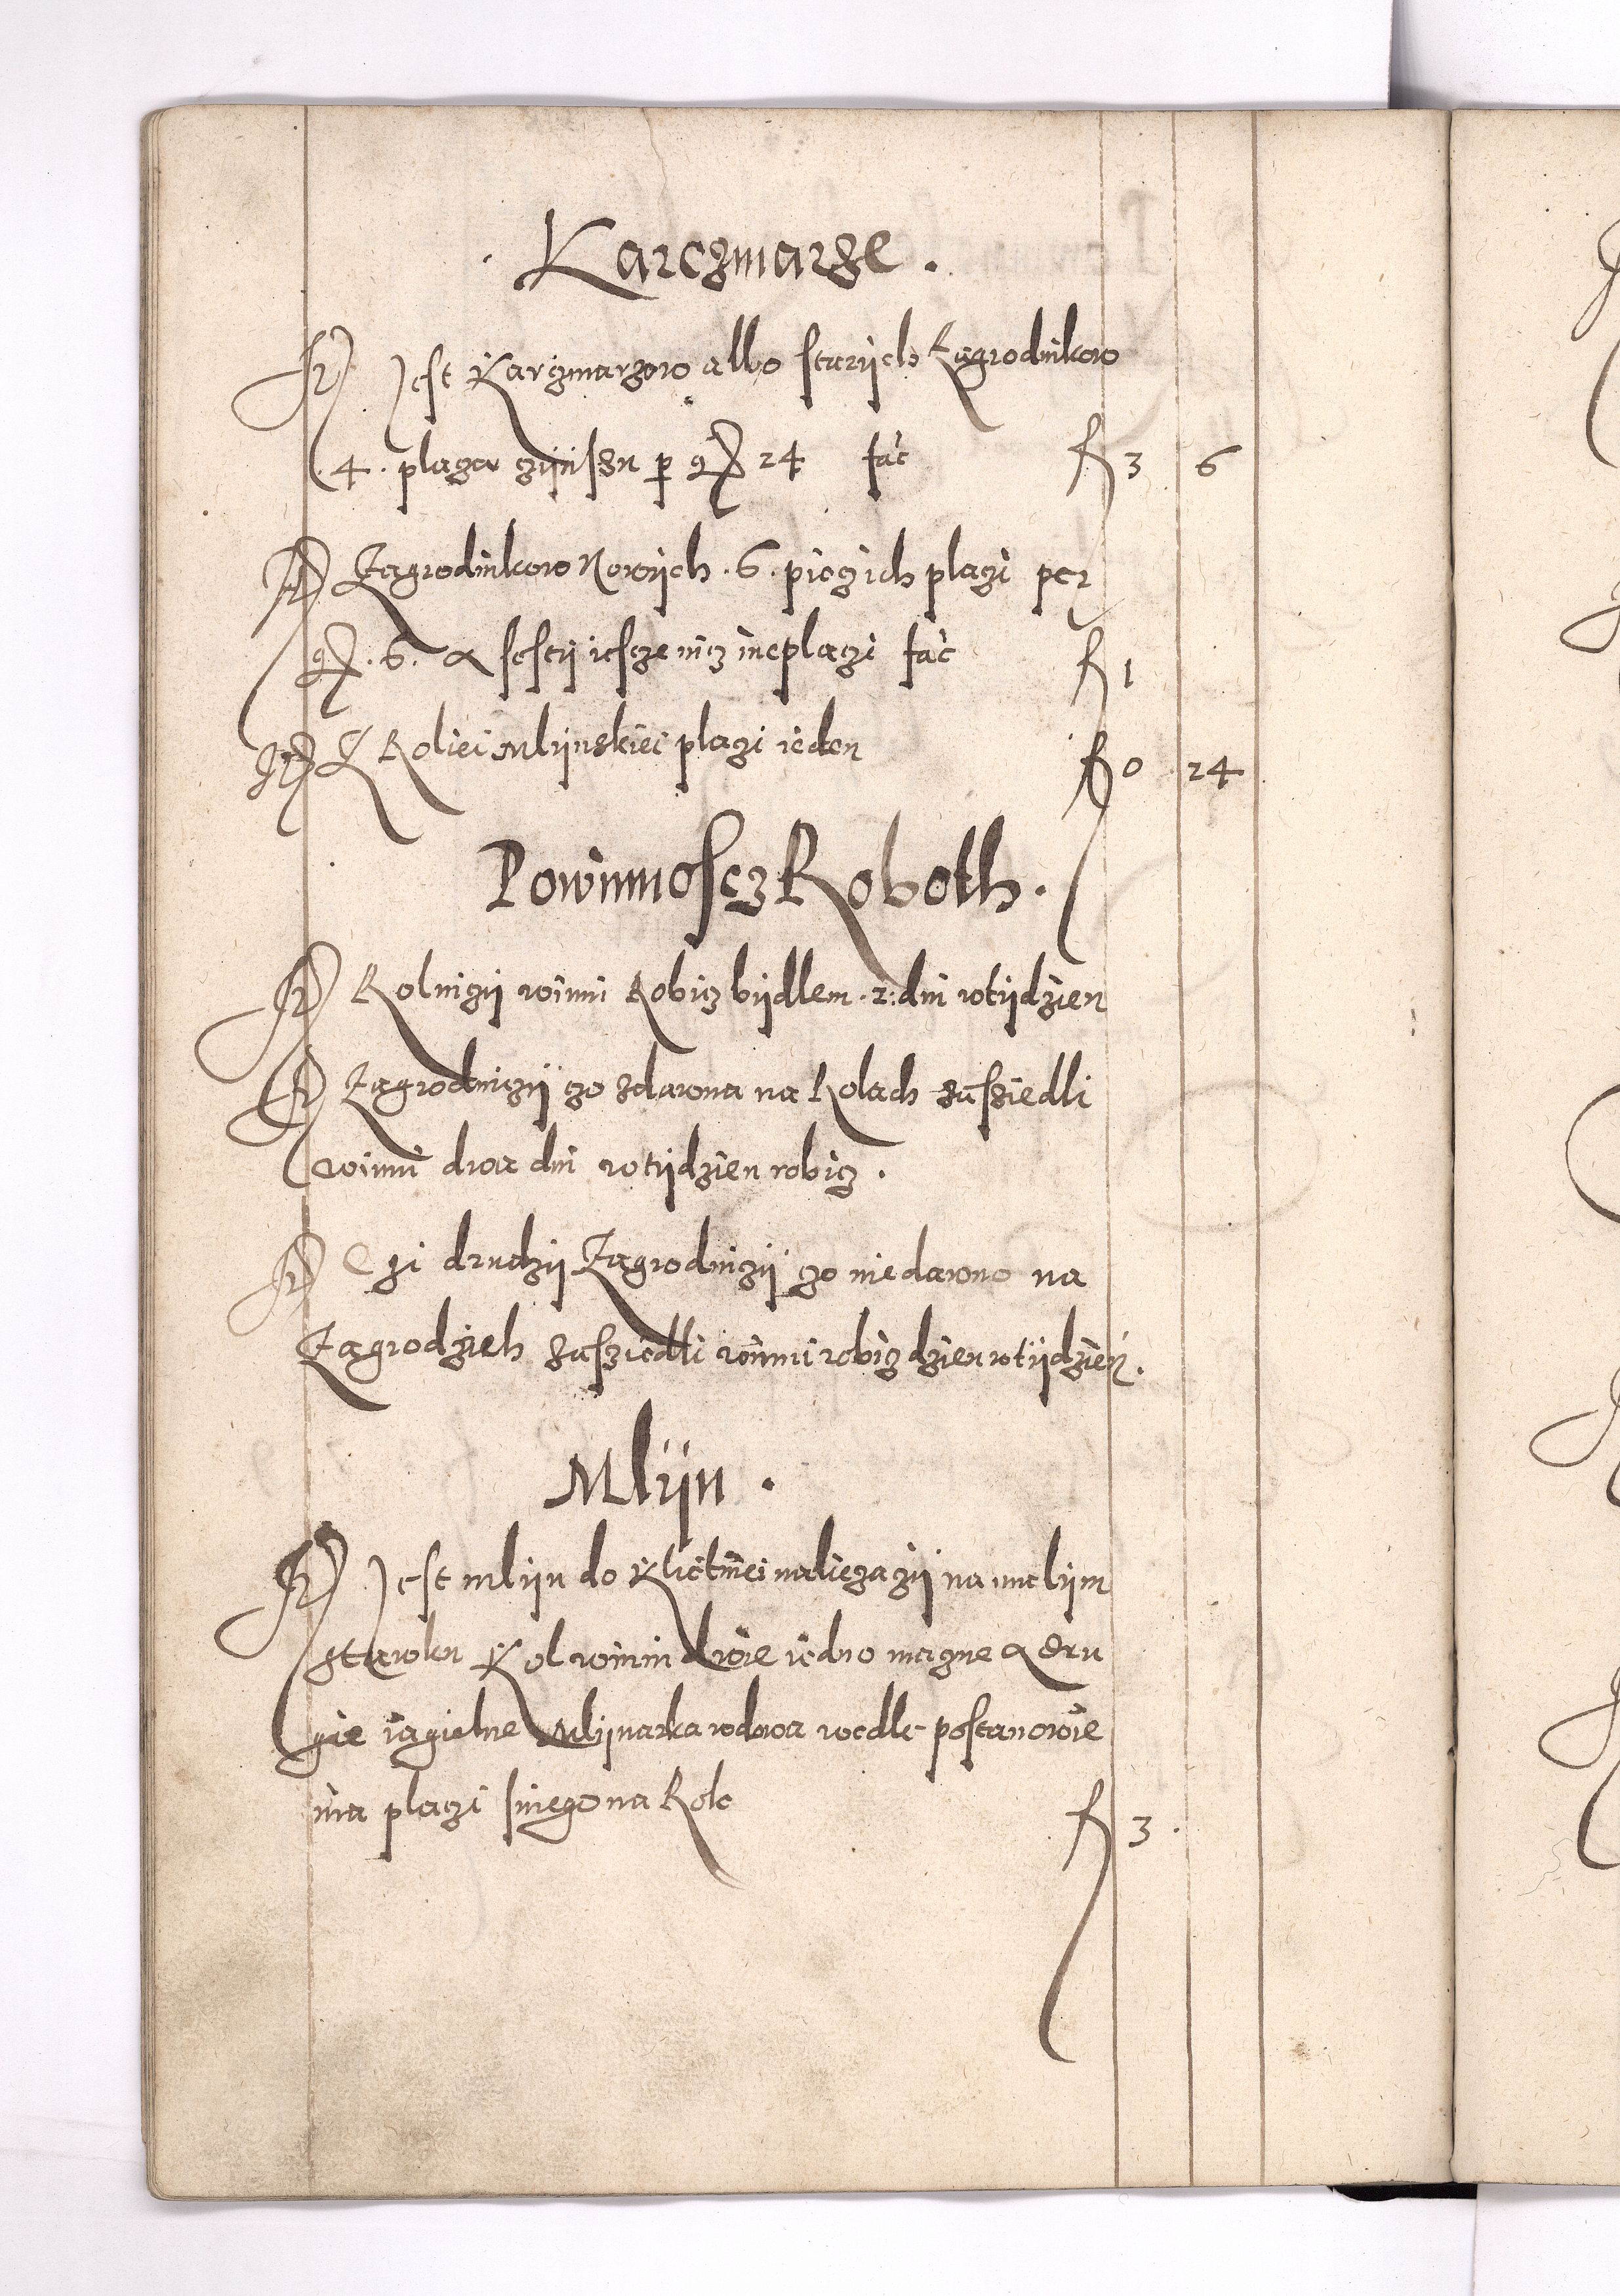 . Karczmarze .
It Jest Karczmarzow albo starijch Zagrodnikow
. 4 . placza czijnszu p gr 24 fac̀ fl 3 6
It Zagrodnikow Nowijch . 6 . pięczich placzi per
gr . 6 . a szostij iescze nicz nieplaczi fac̀ fl 1
It Z Roliei Mlijnskiei placzi ieden fl 0 24
Powinnoscz Roboth .
It Rolniczij winni Robicz bijdlem . 2 : dni wtijdzien
It Zagrodniczij czo zdawna na Rolach zasziedli
winni dwa dni wtijdzien robicz .
It Czi drudzij Zagrodniczij czo niedawno na
Zagrodzieh zasziedli winni robicz dzien wtijdzień .
Mlijn .
It Jest mlijn do naliezaczij na malijm
stawku Kol winni dwie iedno maczne a dru
gie iagielne Mlijnarka wdowa wedle postanowie
nia placzi sniego na Rok fl 3 .